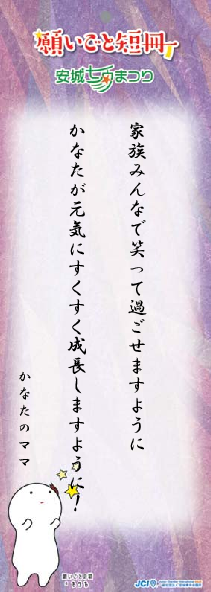 願いごと短冊
安城七夕まつり
家族みんなで笑って過ごせますように
かなたが元気にすくすく成長しますように！
かなたのママ
JCI